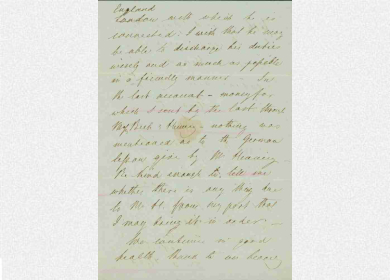 England
London with which he is
connected. I wish that he may
be able to discharge his duties
wisely and as much as possible
in a friendly manner. In
the last account - money for
which I sent by the last
nothing was
mentioned as to the German
lessons given by Mr
Be kind enough to tell me
whether there is any thing due
to Mr H. from my part that
I may bring it in order. -
We continue in good
health, thank to our